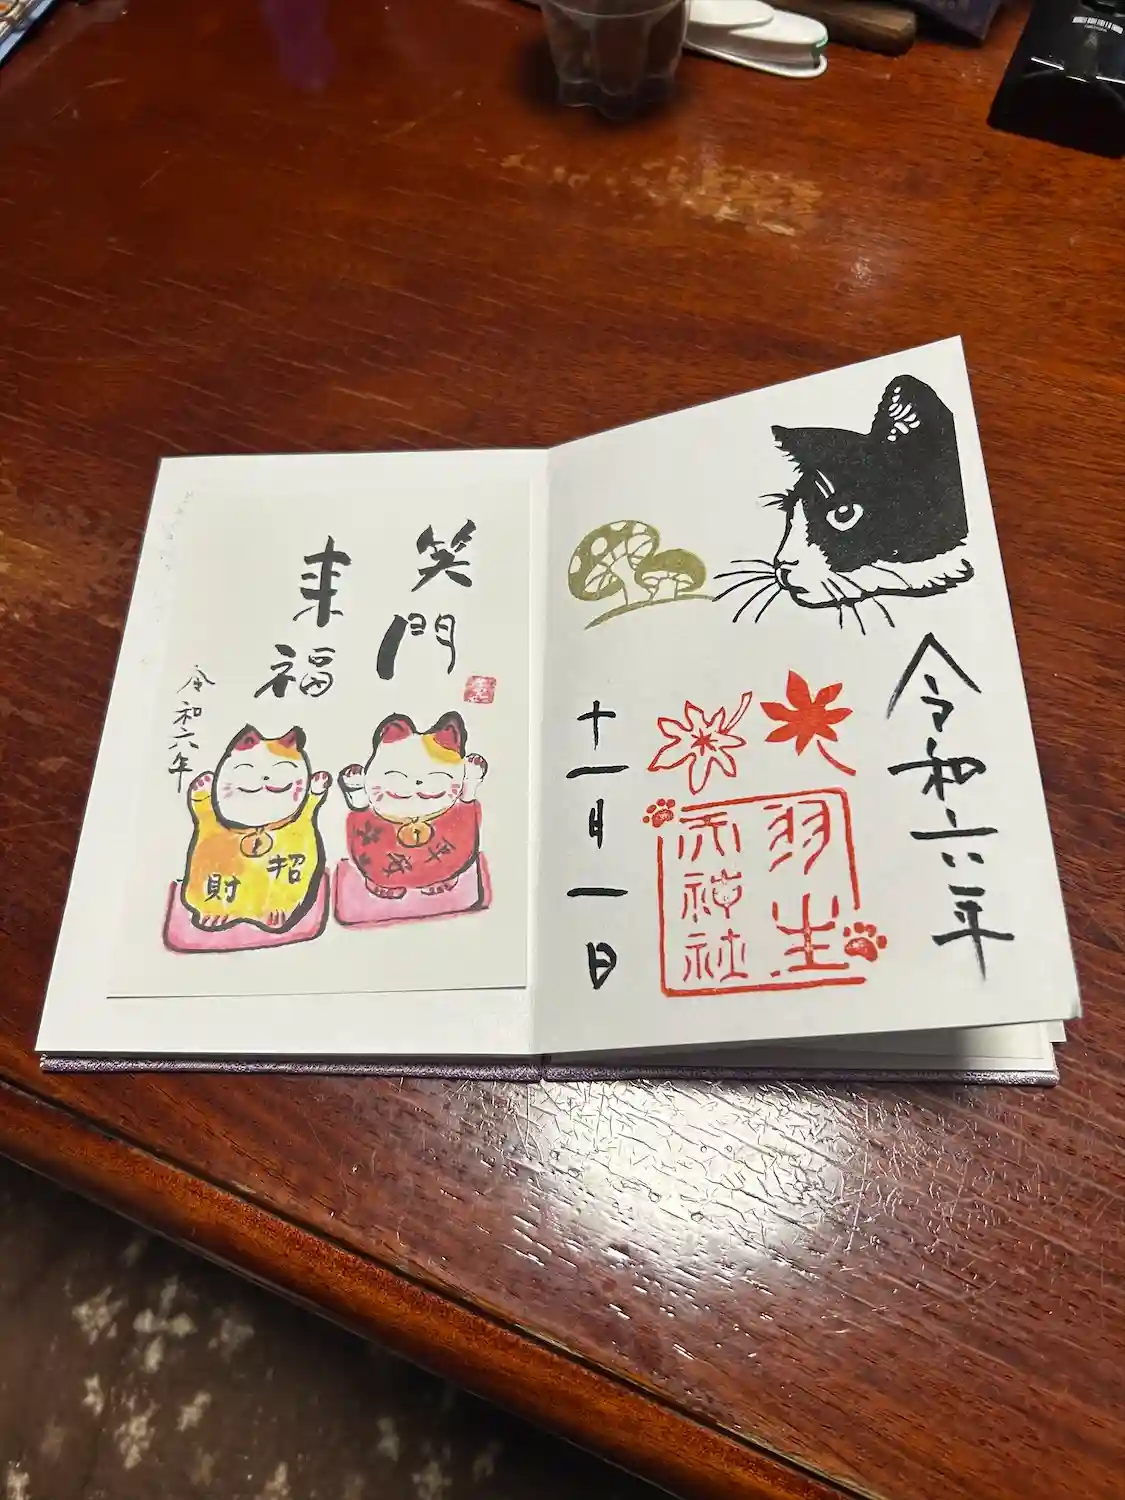 笑門
来福
令和六年
招財
令和六年
羽生
天神社
十一月一日